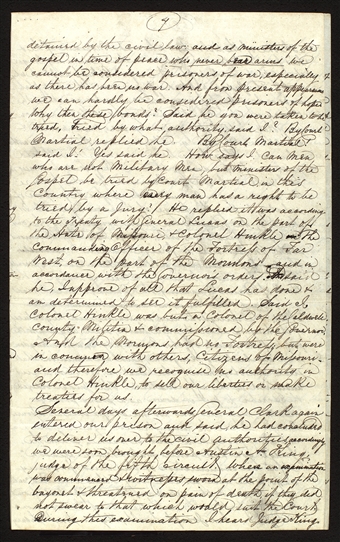 (9)
detained by the civil law; and as ministers of the
gospel in time of peace who never bear arms we
cannot be considered prisoners of war, especially
as there has been no war. And from present appearances
we can hardly be considered prisoners of hope
Why then these bonds? Said he you were taken to be
tried, Tried by what authority, said I? By Court
Martial, replied he. By Court Martial?
said I; Yes said he How says I can men
who are not Military Men, but ministers of the
Gospel be tried by Court Martial in this
Country where every man has a right to be
tried by a Jury. He replied, it was according
to the treaty with General Lucas on the part of
the State of Missouri & Colonel Hinkle the
commanding Officer of the Fortress of Far
West, on the part of the Mormons, and in
accordance with the Governors order. And said
he, I approve of all that Lucas has done &
am determined to see it fulfilled. Said I,
Colonel Hinkle was but a Colonel of the Caldwell
County Militia & commissioned by the Governor
And the Mormons had no Fortress, but were
in common with others, Citizens of Missouri
and therefore we recognise no authority in
Colonel Hinkle, to sell our liberties or make
treaties for us.
Several days afterwards General Clark again
entered our prison and said he had concluded
to deliver us over to the civil authorities, accordingly
we were soon brought before Austin A. King,
judge of the fifth circuit, where an examination
was commenced & witnesses sworn at the point of the
bayonet & threatened on pain of death if they did
not swear to that which would suit the Court
During this examination I heard Judge King